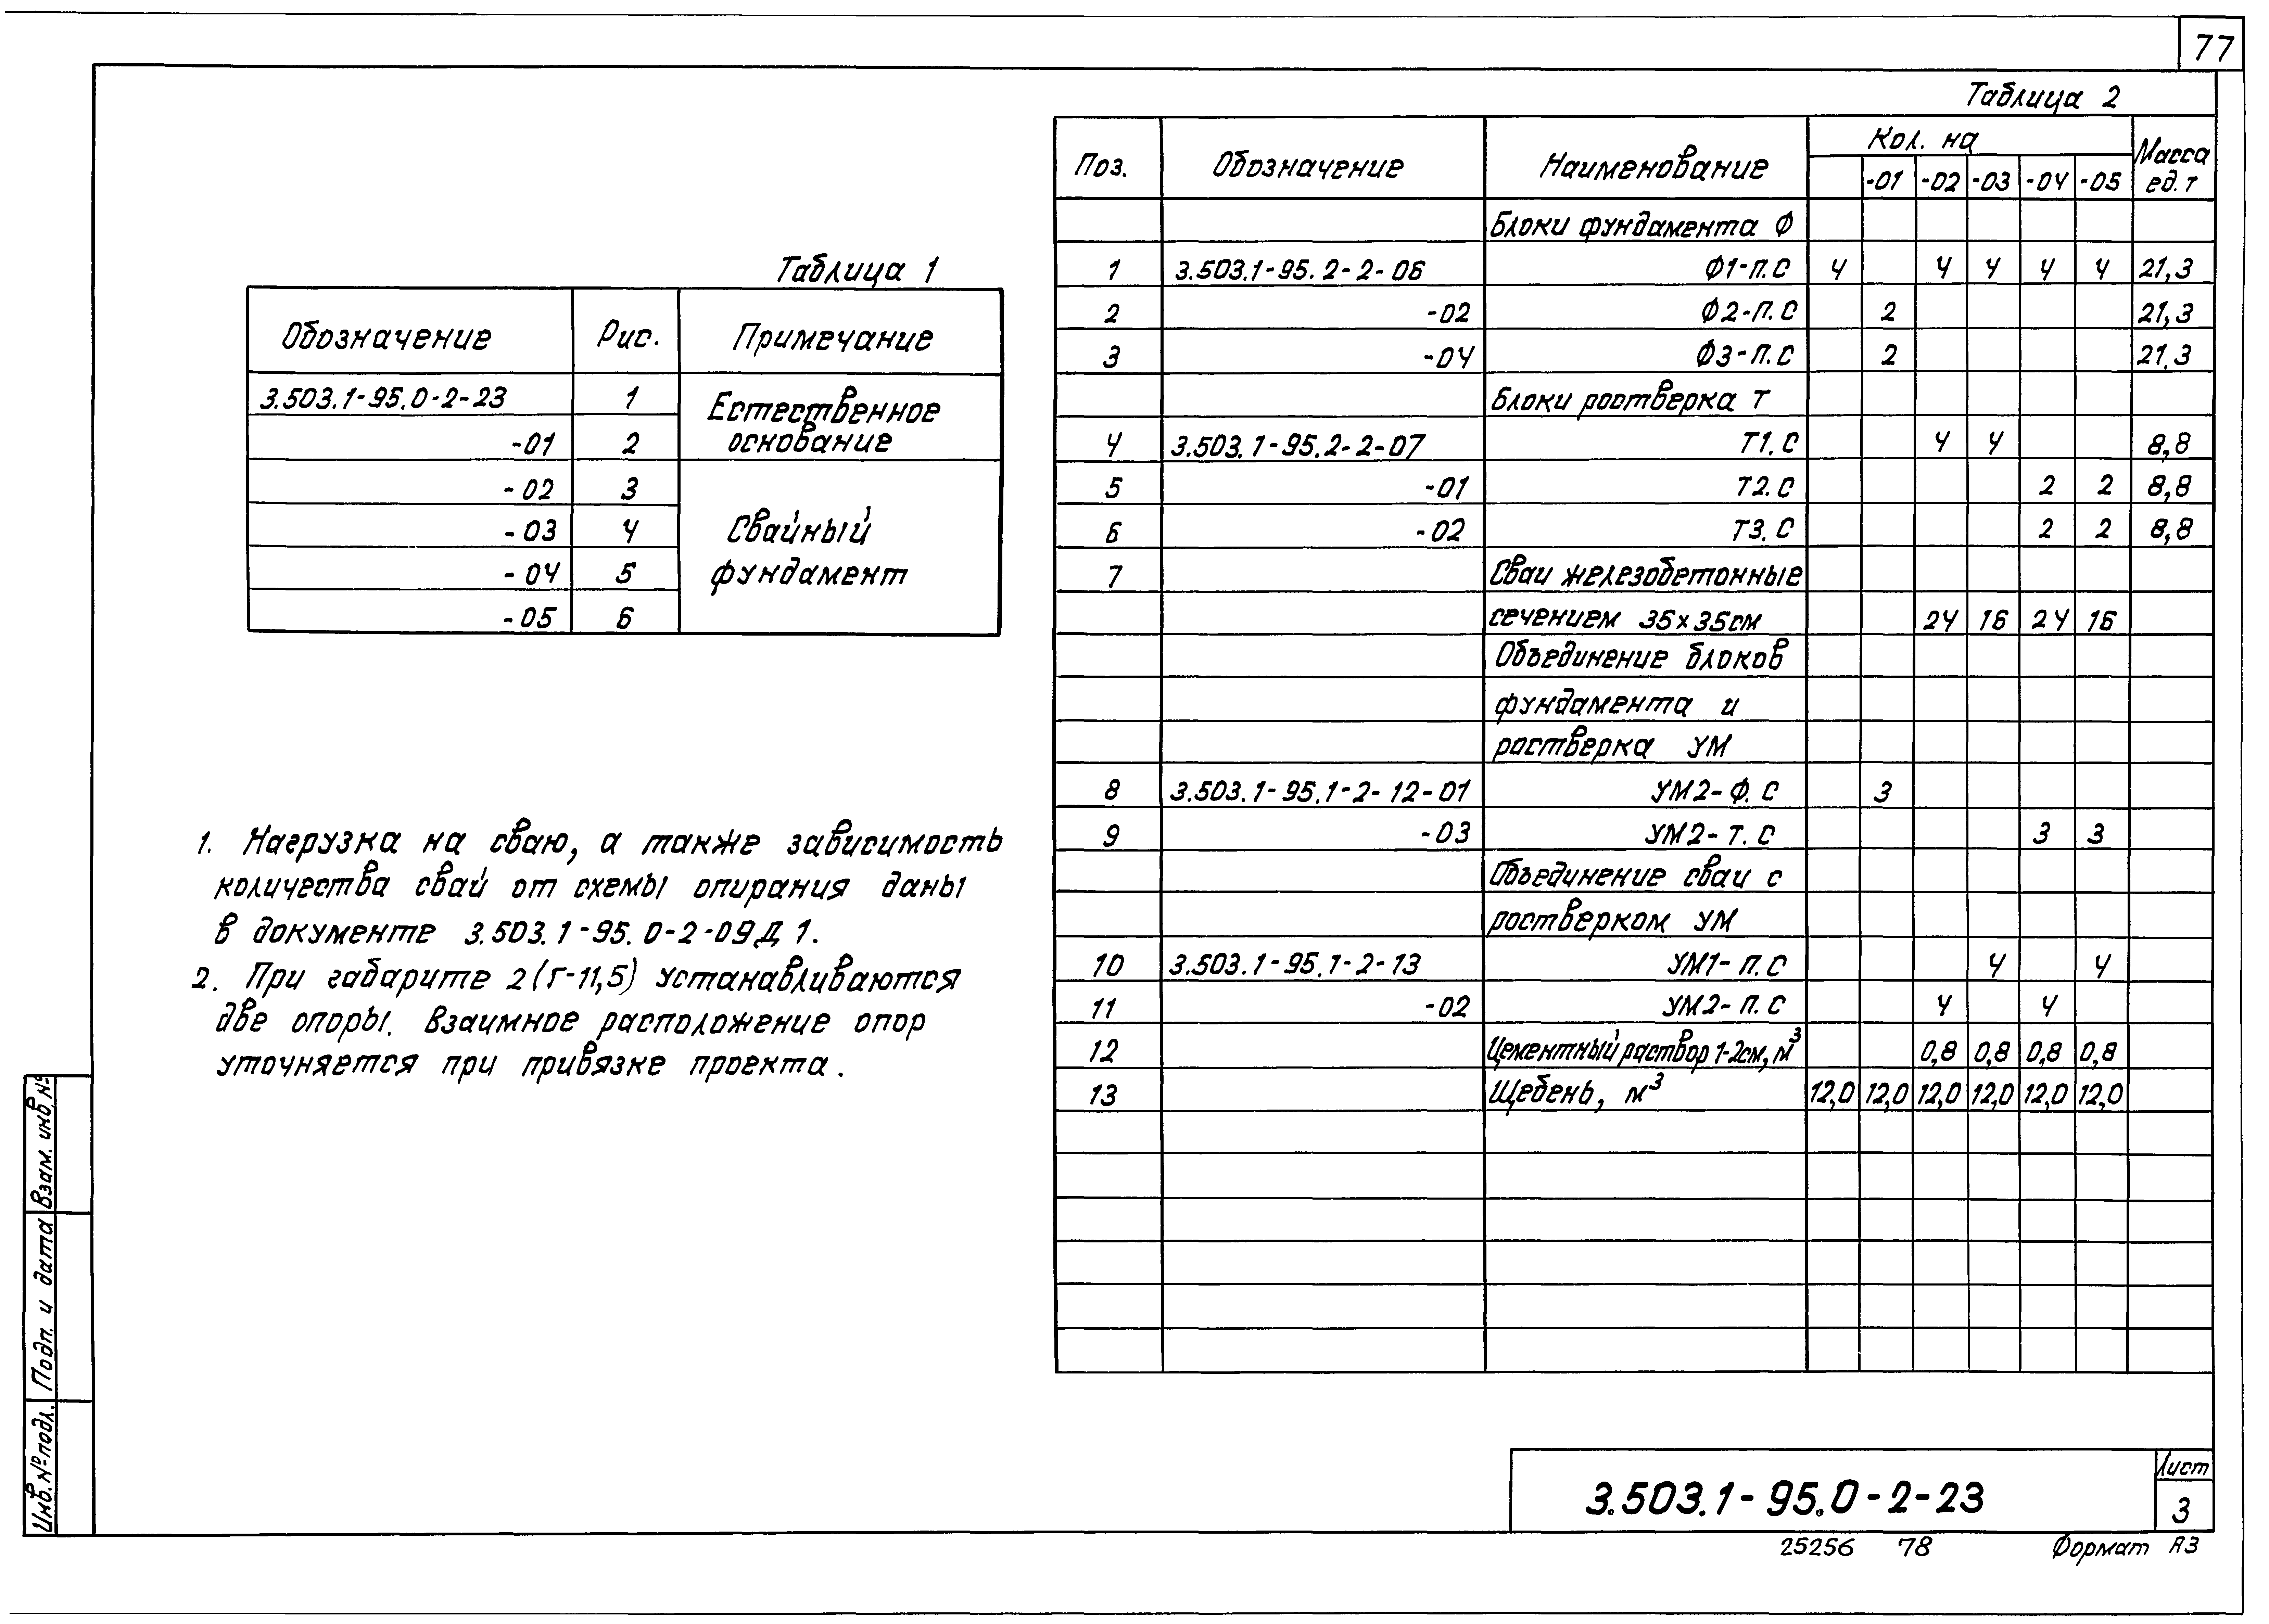 77
Таблица 1
Обозначение Рис. Примечание
3.503.1-95.0-2-23 1 Естественное
-01 2 основание
-02 3
-03 4 Свайный
-04 5 фундамент
-05 6
1. Нагрузка на сваю, а также зависимость
количества свай от схемы опирания даны
в документе 3.503.1-95.0-2-09Д1.
2. При габарите 2(Г-11,5) устанавливаются
две опоры. Взаимное расположение опор
уточняется при привязке проекта.
Таблица 2
Поз. Обозначение Наименование Кол. на Масса ед. т
-01 -02 -03 -04 -05
Блоки фундамента Ф
1 3.503.1-95.2-2-06 Ф1-П.С 4 4 4 4 4 21,3
2 -02 Ф2-П.С 2 21,3
3 -04 Ф3-П.С 2 21,3
Блоки ростверка Т
4 3.503.1-95.2-2-07 Т1.С 4 4 8,8
5 -01 Т2.С 2 2 8,8
6 -02 Т3.С 2 2 8,8
7 Сваи железобетонные
сечением 35×35см 24 16 24 16
Объединение блоков
фундамента и
ростверка УМ
8 3.503.1-95.1-2-12-01 УМ2-Ф.С 3
9 -03 УМ2-Т.С 3 3
Объединение сваи с
ростверком УМ
10 3.503.1-95.1-2-13 УМ1-П.С 4 4
11 -02 УМ2-П.С 4 4
12 Цементный раствор 1-2см, м³ 0,8 0,8 0,8 0,8
13 Щебень, м³ 12,0 12,0 12,0 12,0 12,0 12,0
Взам. инв. №
Подп. и дата
Инв. № подл.
3.503.1-95.0-2-23
Лист
3
25256 78 Формат А3